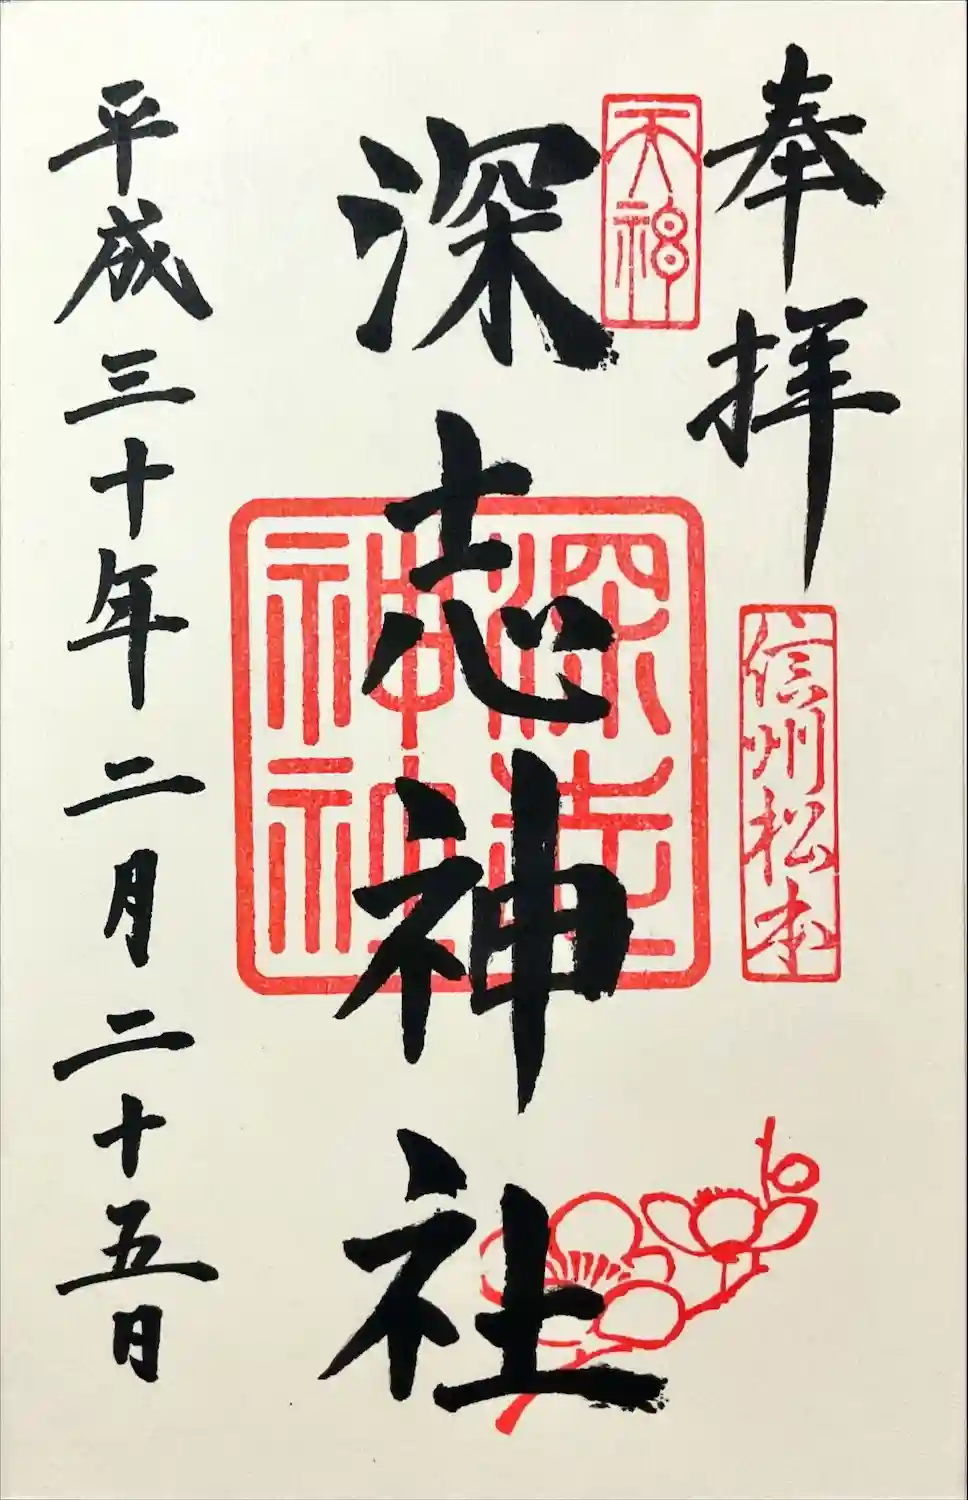 奉拝
信州松本
天神
深志神社
深志神社
平成三十年二月二十五日